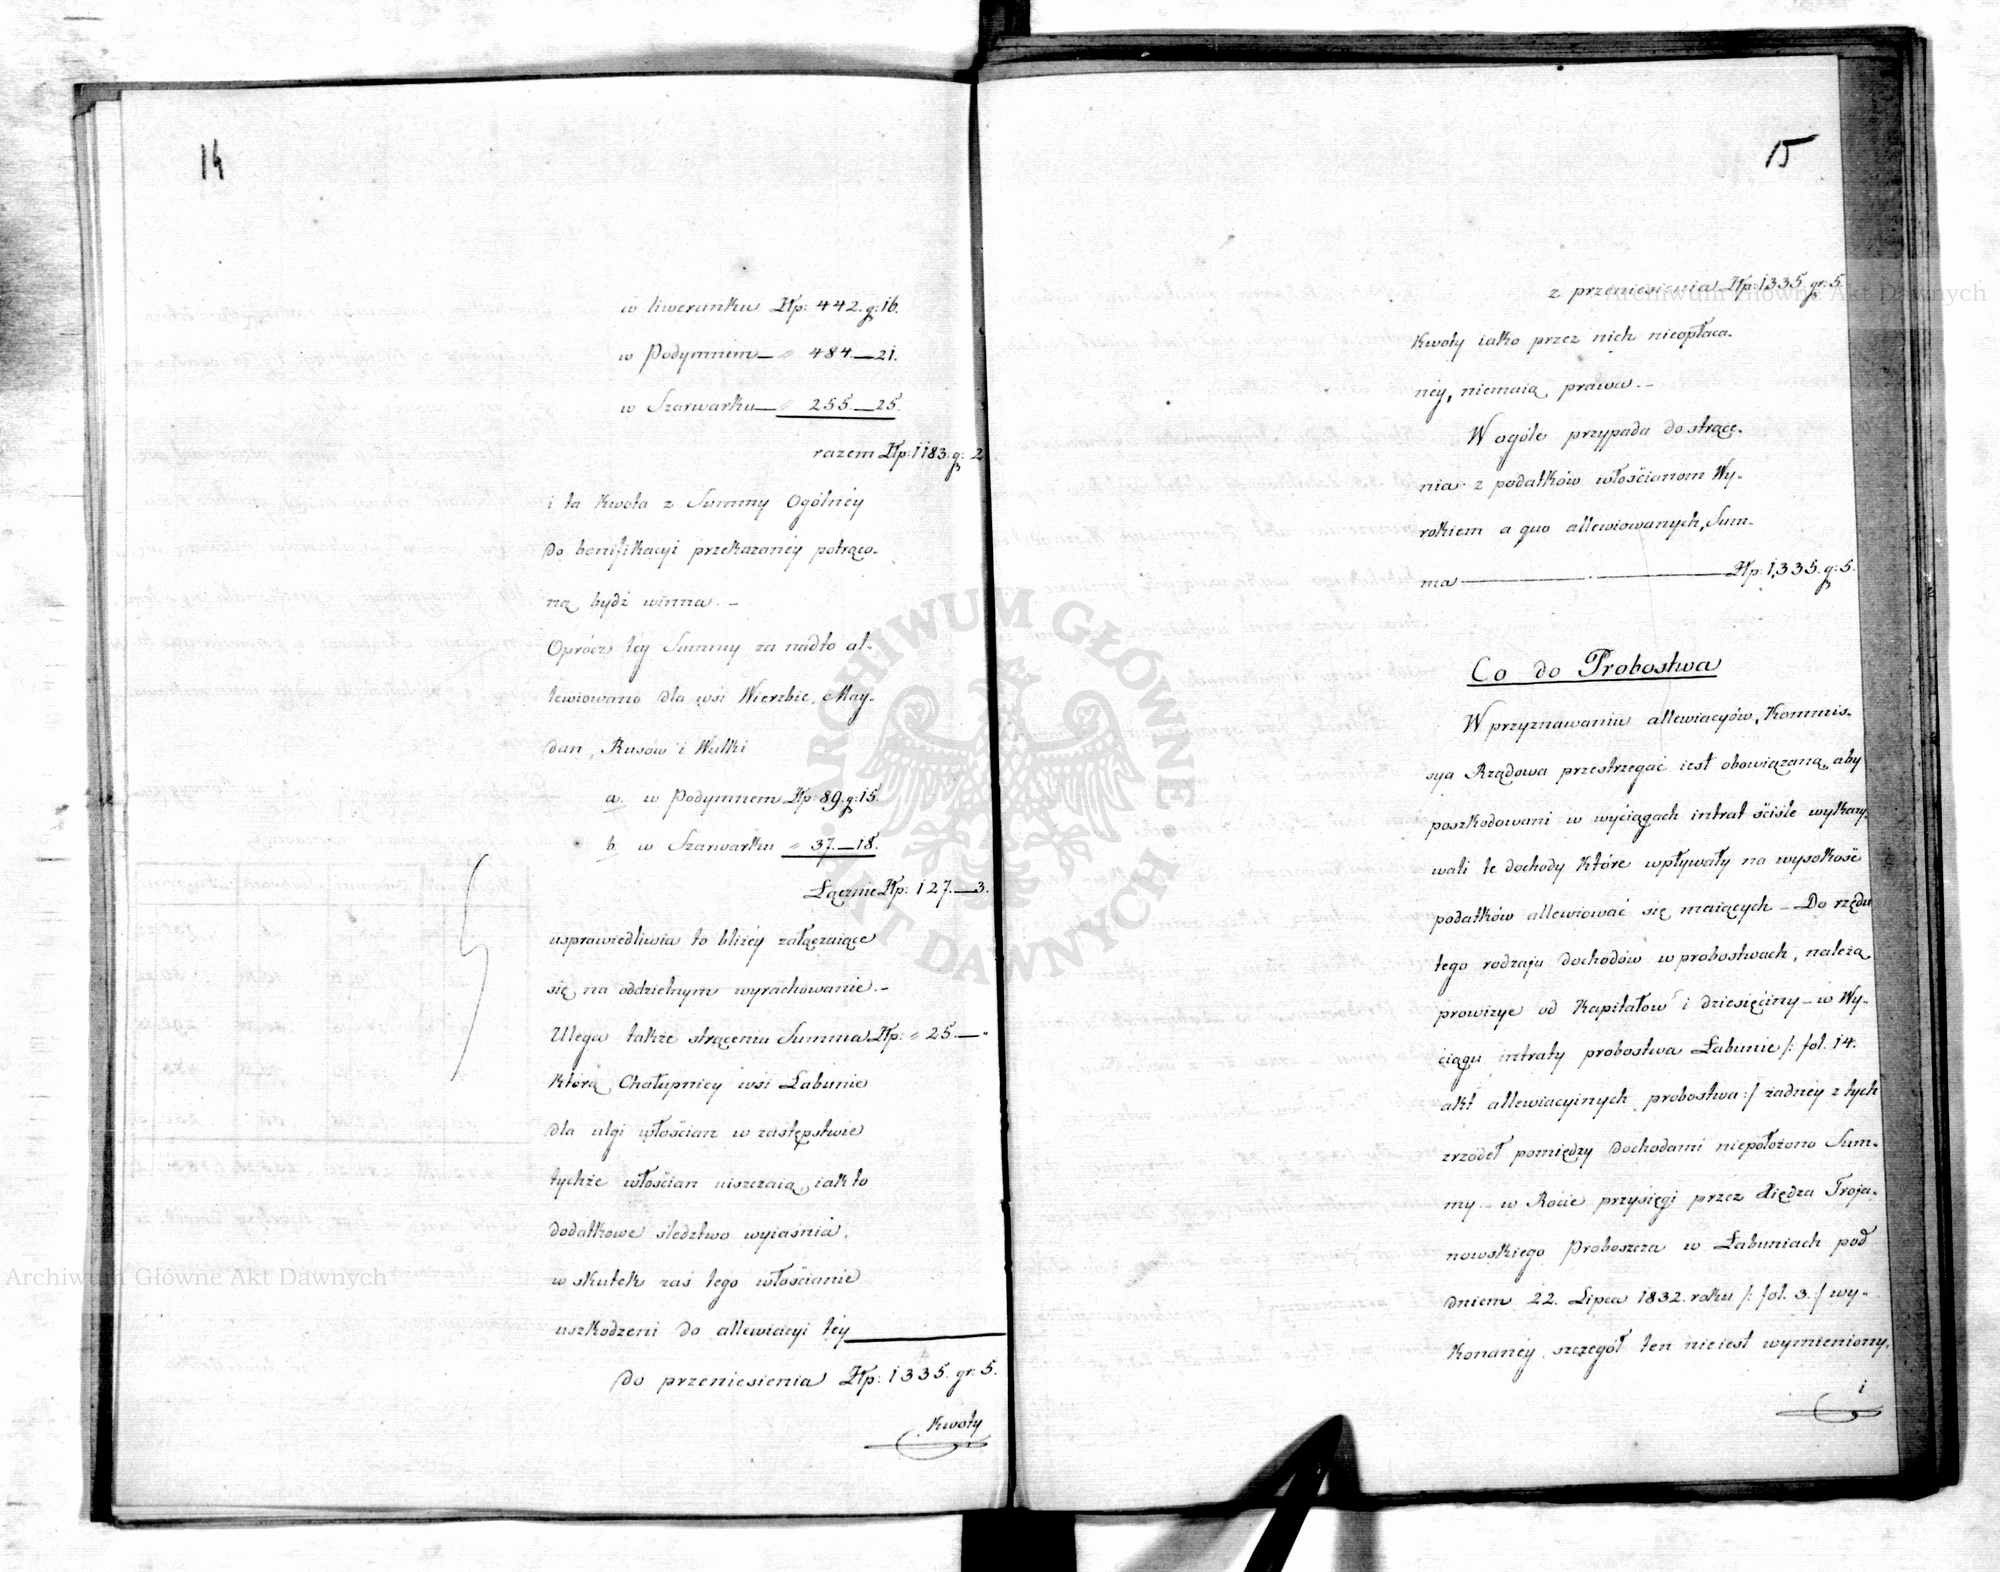 14
w liwerunku Złp: 442. g: 16.
w Podymném — " 484. — 21.
w Szarwarku — " 255. — 25.
razem Złp: 1183. g: 2
i ta Kwota z Summy Ogólnéy
do bonifikacyi przekazanéy potrąco-
ną bydź winna. —
Oprócz téy Summy za nadto al-
lewiowano dla wsi Wierzbie, May-
dan, Rusów i Wulki
a. w Podymnem Złp: 89. g: 15.
b. w Szarwarku " 37. — 18.
Łącznie Złp: 127. — 3.
usprawiedliwia to bliżéy załączaiące
się na oddzielnym wyrachowanie. —
Ulega także strąceniu Summa Złp: " 25. — "
którą Chałupnicy wsi Łabunie
dla ulgi włościan w zastępstwie
tychże włościan uiszczaią, iak to
dodatkowe śledztwo wyiaśnia,
w skutek zaś tego włościanie
uszkodzeni do allewiacyi téy
do przeniesienia Złp: 1335. gr: 5.
Kwoty
15
z przeniesienia Złp: 1335. gr: 5.
Kwoty iako przez nich nieopłaca-
néy, niemaią prawa. —
W ogóle przypada do strące-
nia z podatków włościanom Wy-
rokiem a quo allewiowanych, Sum-
ma — Złp: 1,335. g: 5.
Co do Probostwa
W przyznawaniu allewiacyów, Kommis-
sya Rządowa przestrzegać iest obowiązaną, aby
poszkodowani w wyciągach intrat ściśle wykazy-
wali te dochody które wpływały na wysokość
podatków allewiować się maiących — Do rzędu
tego rodzaju dochodów w probostwach, należą
prowizye od Kapitałów i dziesięciny — w Wy-
ciągu intraty probostwa Łabunie /: fol. 14.
akt allewiacyinych probostwa :/ żadnéy z tych
zrzódeł pomiędzy dochodami niepołożono Sum-
my — w Rocie przysięgi przez Xiędza Troja-
nowskiego Proboszcza w Łabuniach pod
dniem 22. Lipca 1832. roku /: fol. 3. :/ wy-
konanéy, szczegół ten nieiest wymieniony.
i
ARCHIWUM GŁÓWNE AKT DAWNYCH
Archiwum Główne Akt Dawnych
Archiwum Główne Akt Dawnych